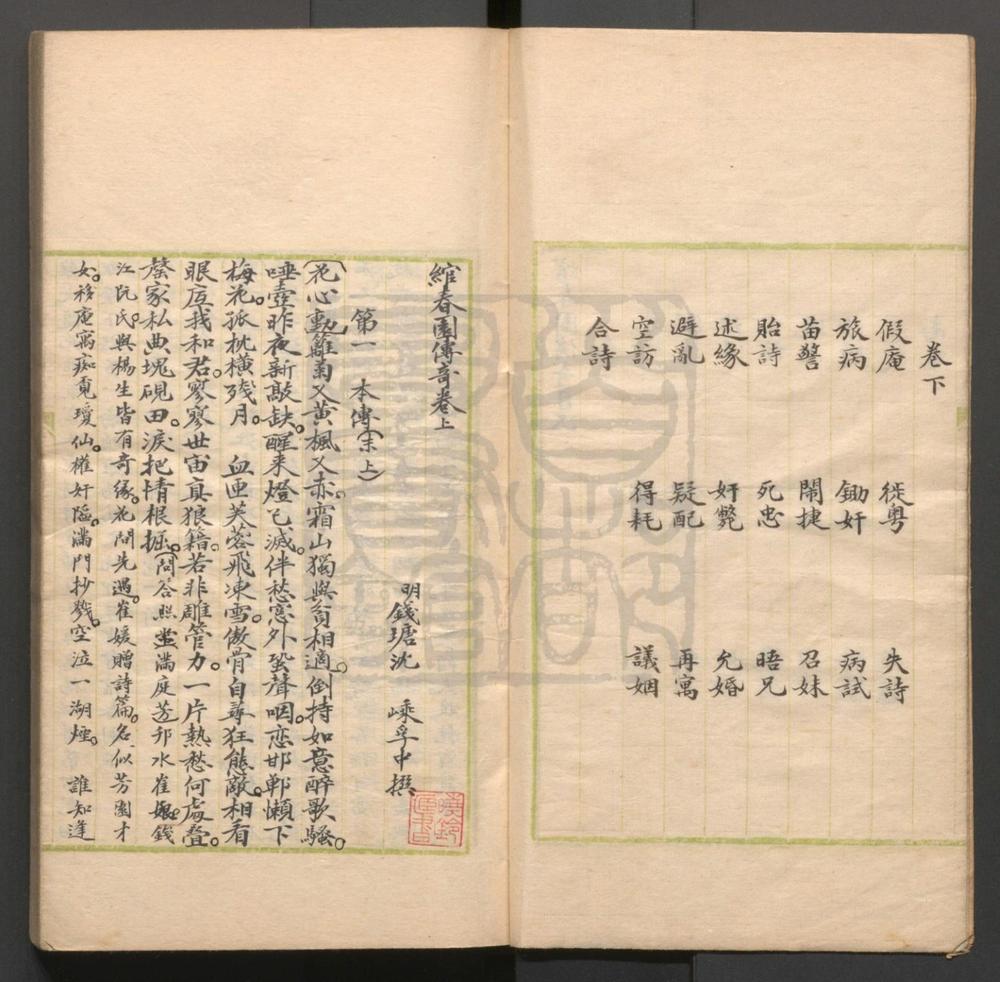 卷下
假庵　徙粵　失詩
旅病　鋤奸　病試
苗警　鬧捷　召妹
貽詩　死忠　晤兄
述緣　奸斃　允婚
避亂　疑配　再寓
空訪　得耗　議姻
合詩
綰春園傳奇卷上
明錢塘沈　嵊孚中撰
第一　本傳（末上）
（花心動）籬菊又黃楓又赤。霜山獨與貧相適。倒持如意醉歌騷。
唾壺昨夜新敲缺。醒來燈已滅。伴愁窓外蛩聲咽。恋邯鄲懶下
梅花。孤枕橫殘月。　血匣芙蓉飛凍雪。傲骨自尋狂態敵。相看
眼底我和君。寥寥世宙真狼籍。若非雕管力。一片熱愁何處疊。
罄家私典塊硯田。淚把情根掘。（問答照常）滿庭芳邗水崔娘。錢
江阮氏。與楊生皆有奇緣。花間先遇。崔媛贈詩篇。名似芳園才
女。移庵寓痴覓瓊仙。權奸陷。滿門抄戮。空泣一湖煙。　誰知逢